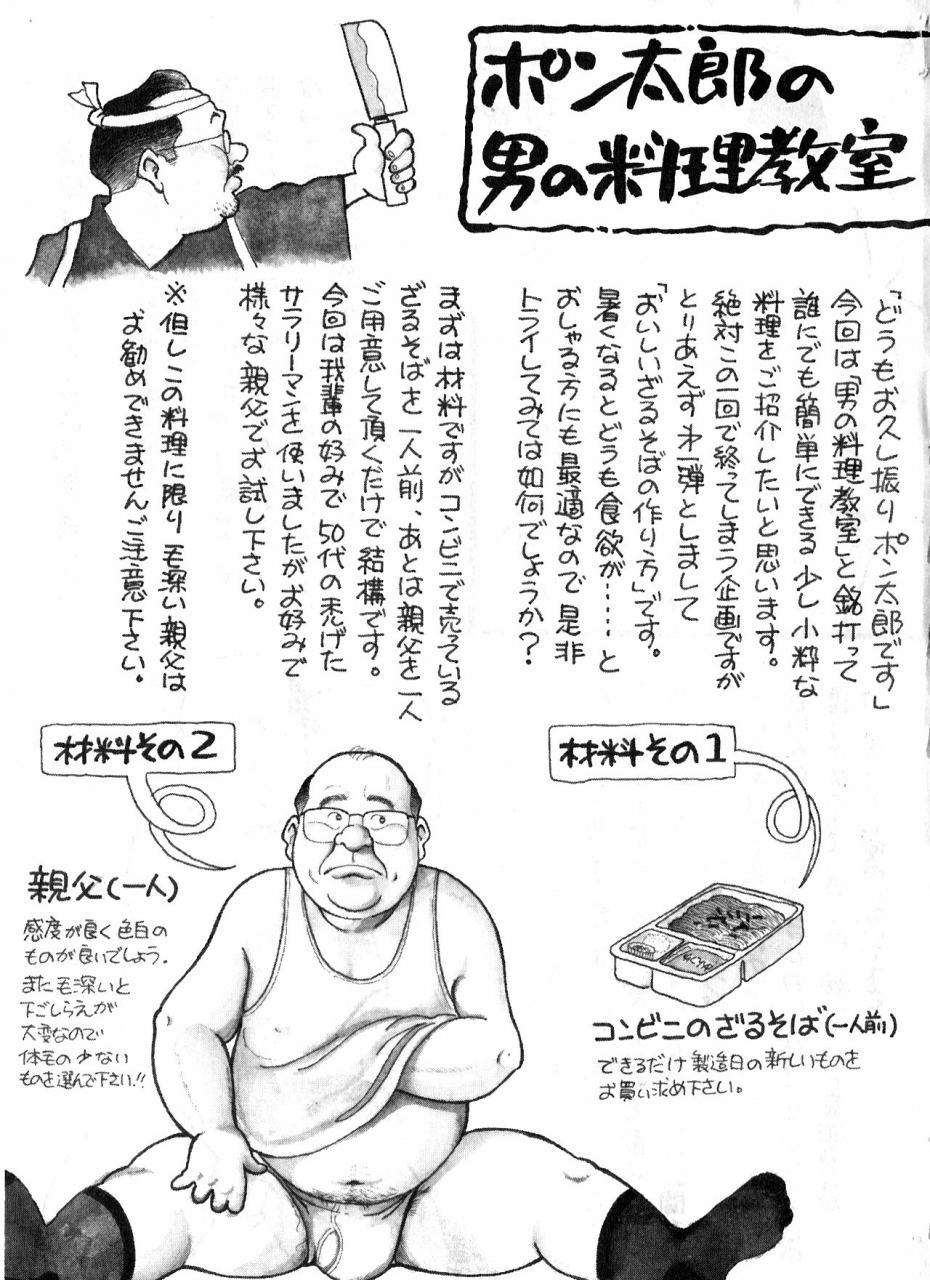 ポン太郎の
男の料理教室
「どうもお久し振りポン太郎です」
今回は「男の料理教室」と銘打って
誰にでも簡単にできる少し小粋な
料理をご紹介したいと思います。
絶対この一回で終ってしまう企画ですが
とりあえず才一弾としまして
「おいしいざるそばの作り方」です。
暑くなるとどうも食欲が……と
おしゃる方にも最適なので是非
トライしてみては如何でしょうか？
まずは材料ですがコンビニで売っている
ざるそばを一人前、あとは親父を一人
ご用意して頂くだけで結構です。
今回は我輩の好みで50代の禿げた
サラリーマンを使いましたがお好みで
様々な親父でお試し下さい。
※但しこの料理に限り毛深い親父は
お勧めできませんご注意下さい。
材料その1
コンビニのざるそば(一人前)
できるだけ製造日の新しいものを
お買い求め下さい。
材料その2
親父(一人)
感度が良く色白の
ものが良いでしょう。
また毛深いと
下ごしらえが
大変なので
体毛の少ない
ものを選んで下さい!!